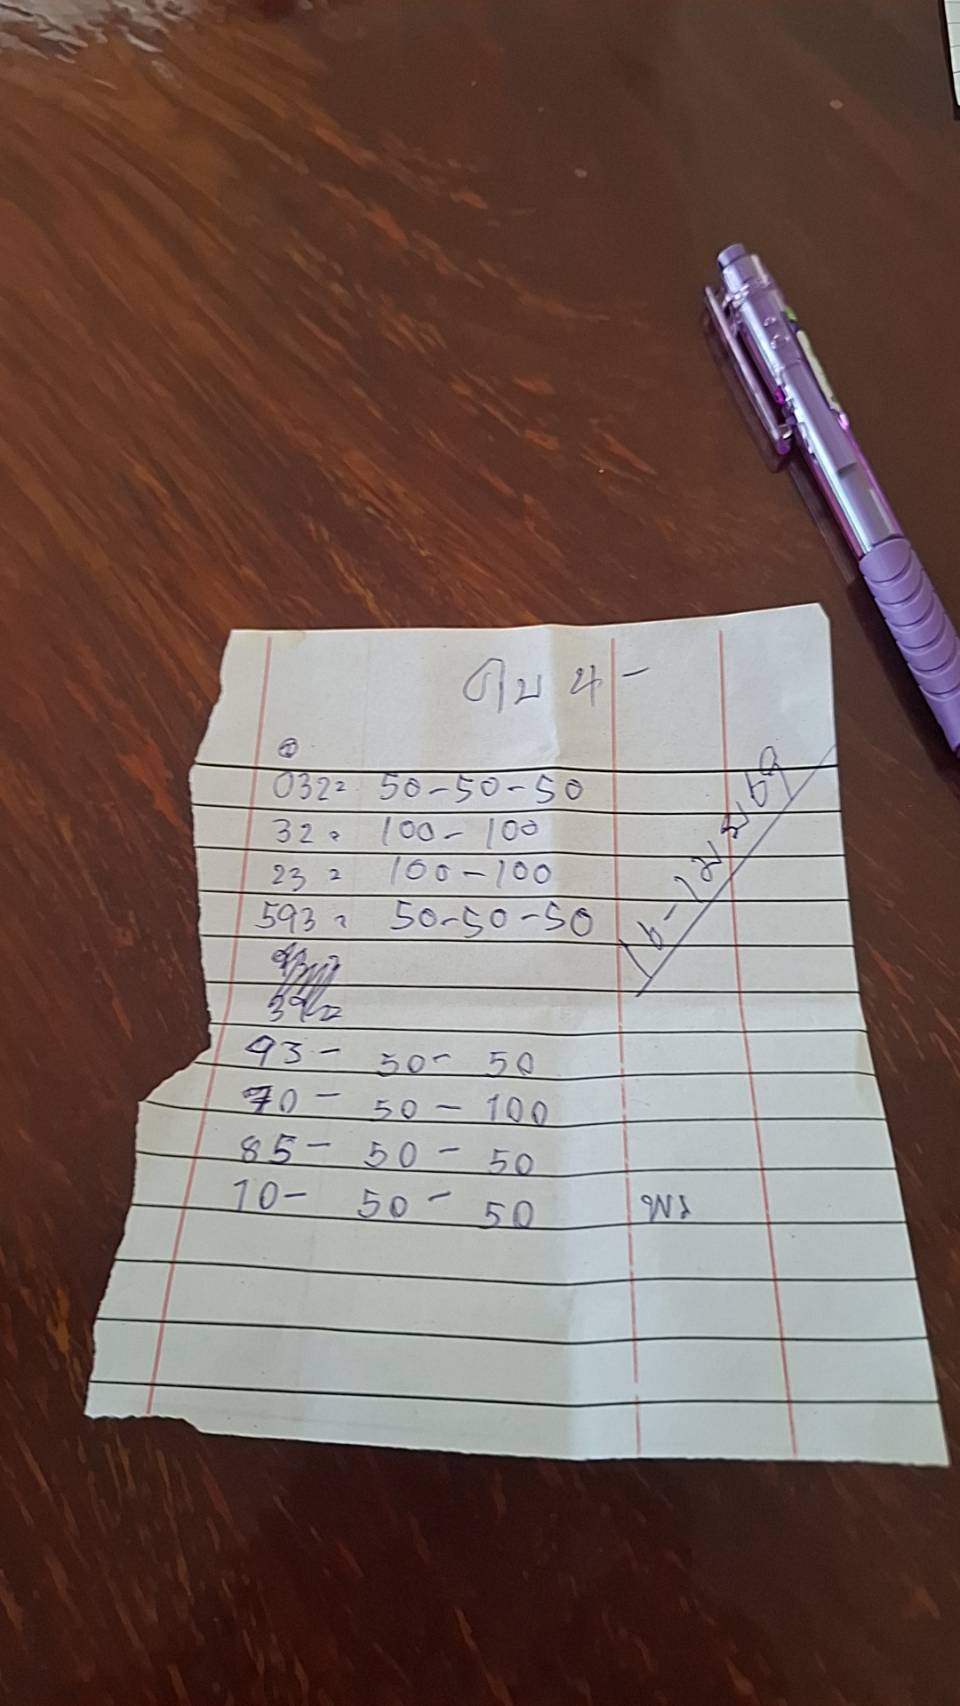 032= 50-50-50
32= 100-100
23= 100-100
593= 50-50-50
93- 50- 50
70- 50- 100
85- 50- 50
10- 50- 50